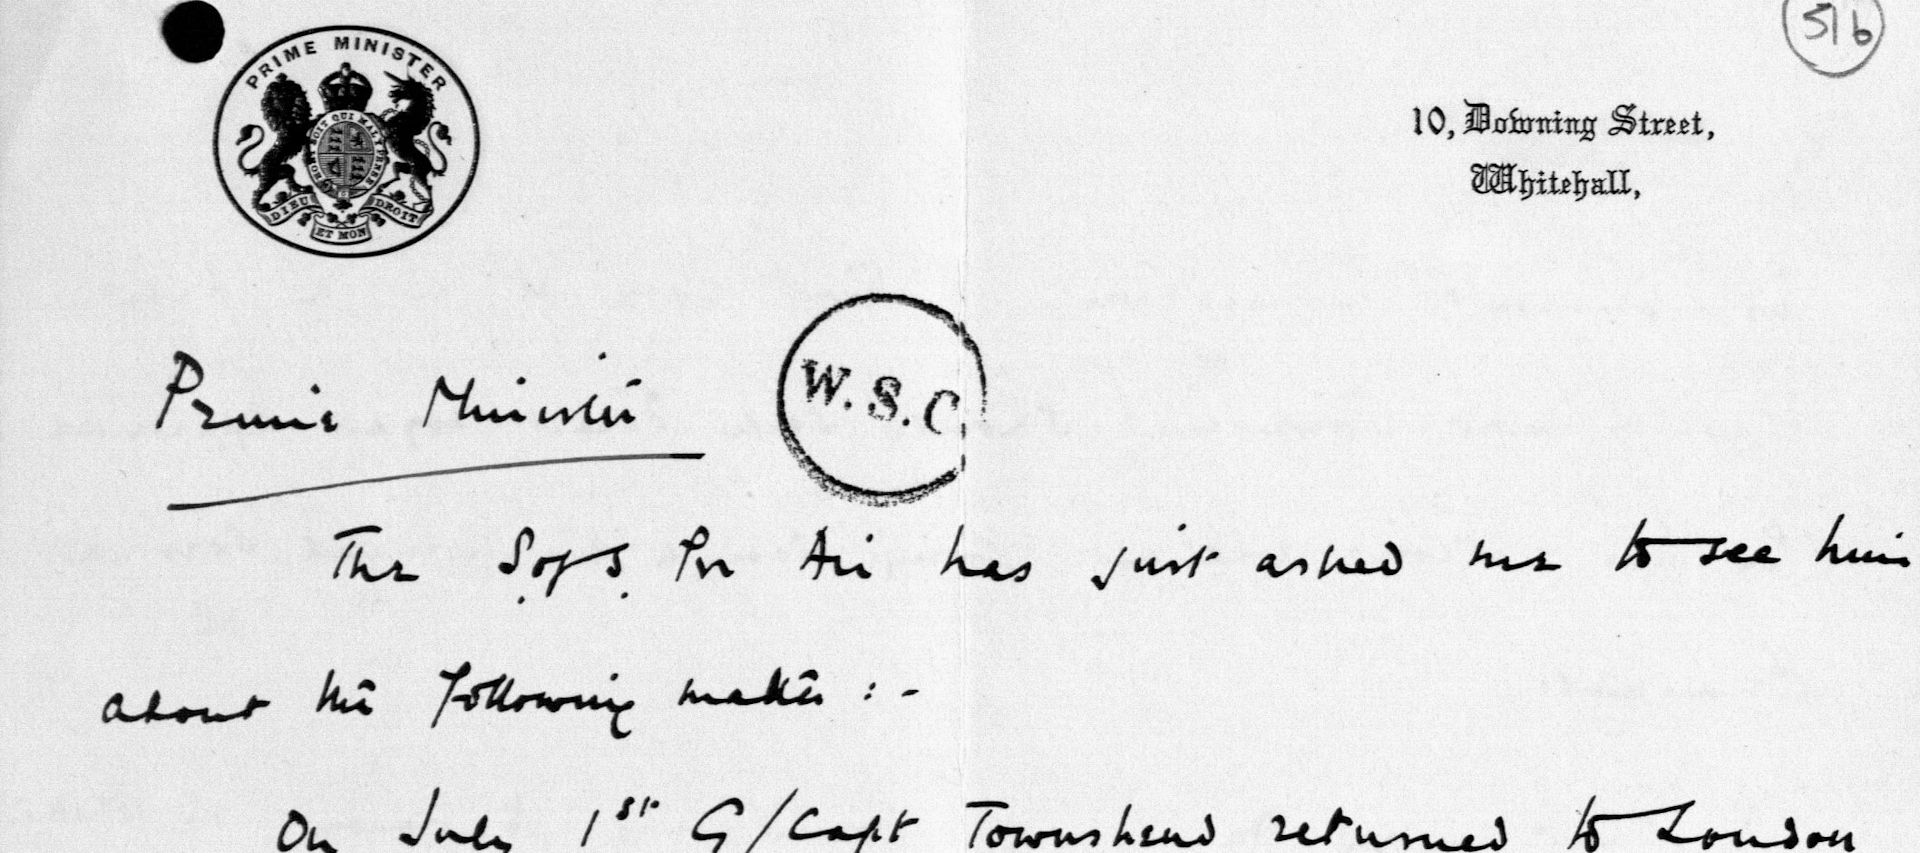 PRIME MINISTER
HONI SOIT QUI MAL Y PENSE
DIEU ET MON DROIT
51b
10, Downing Street,
Whitehall,
Prime Minister
W.S.C
The S. of S. for Air has just asked me to see him
about the following matter :-
On July 1st G/Capt Townshend returned to London